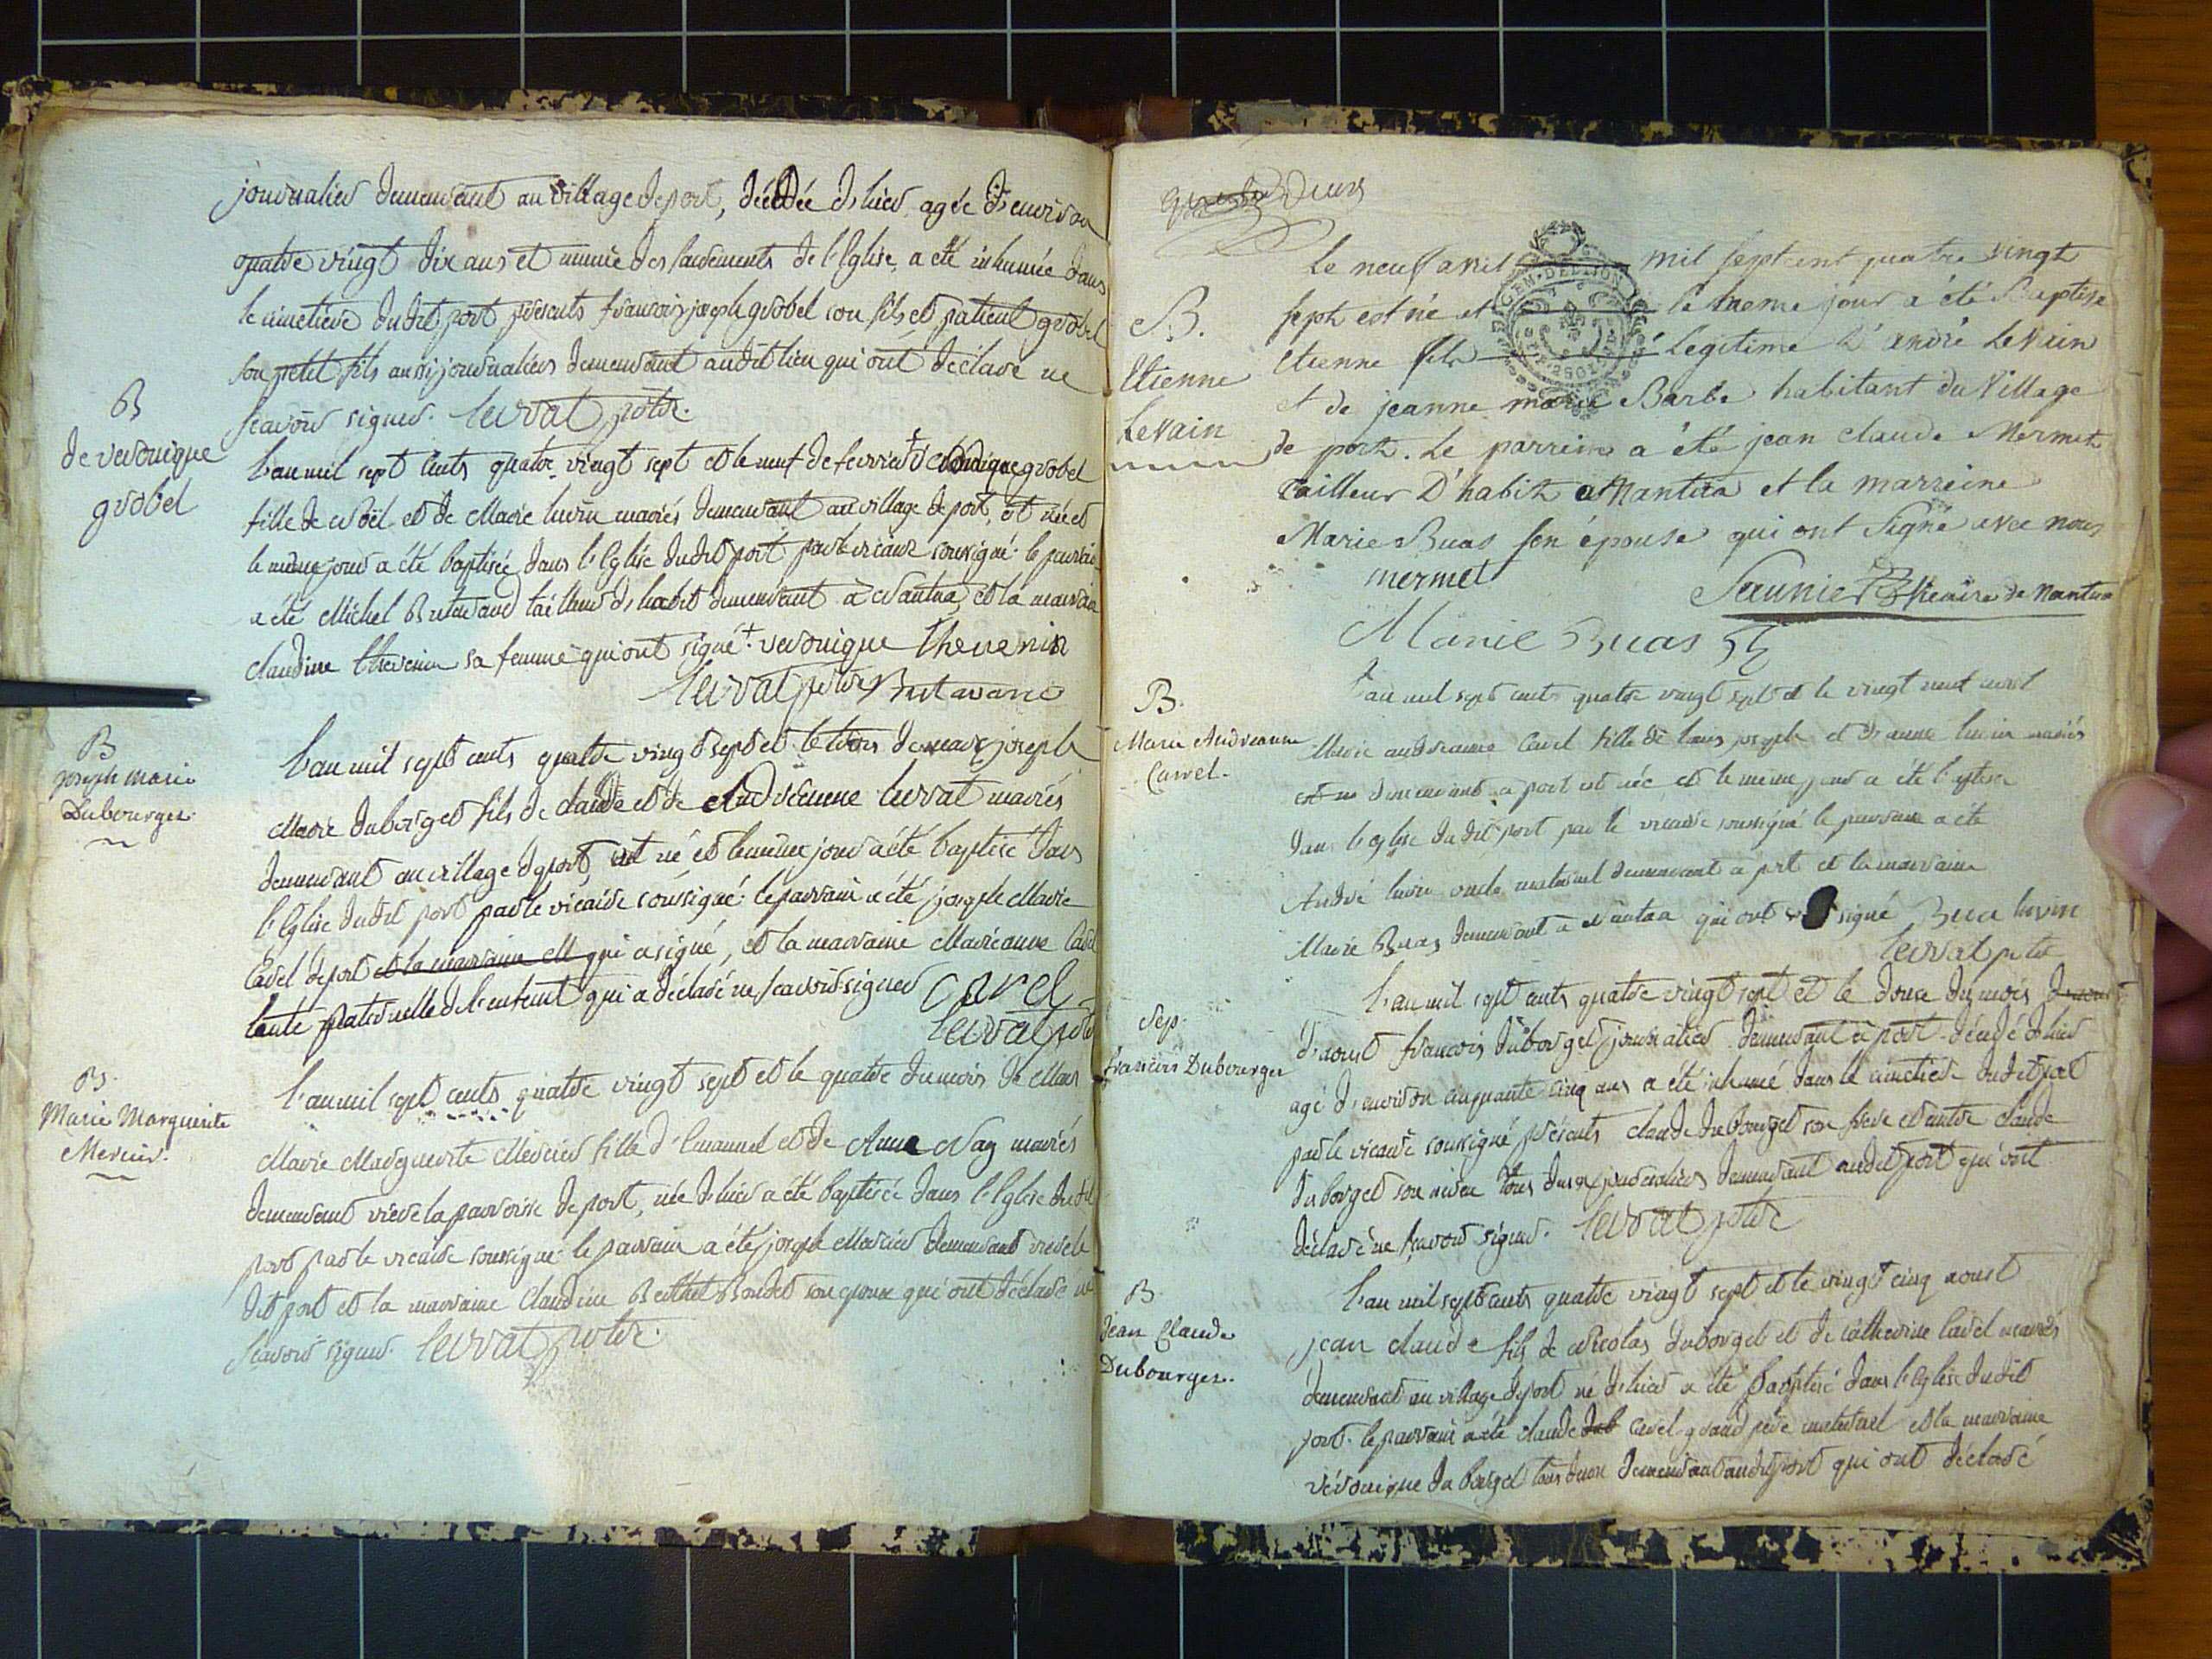 journalier demeurant au village de port, décédée d'hier, agée d'environ
quatre vingt dix ans et munie des sacrements de l'Eglise, a été inhumée dans
le cimetiere dudit port présents francois joseph grobel son fils et patient grobel
son petit fils aussi journaliers demeurant audit lieu qui ont déclaré ne
scavoir signer. levrat ptre.
B
de veronique
grobel
l'an mil sept cents quatre vingt sept et le neuf de fevrier grobel
fille de Noël et de Marie luvin mariés demeurant au village de port, est née et
le meme jour a été baptisée dans l'Eglise dudit port par le vicaire soussigné. le parrain
a été Michel Butavand tailleur d'habit demeurant à Nantua, et la marraine
claudine thevenin sa femme qui ont signé. + veronique thevenin
levrat ptre Butavand
B
joseph marie
Dubourget.
l'an mil sept cents quatre vingt sept et le trois de mars joseph
Marie duborget fils de claude et de Andréenne levrat mariés
demeurant au village de port, est né et le même jour a été baptisé dans
l'Eglise dudit port par le vicaire soussigné: le parrain a été joseph Marie
Cavel de port et la marraine M qui a signé, et la marraine Marie anne Cavel
tante paternelle de l'enfant qui a déclaré ne scavoir signer Cavel
levrat ptre
B.
Marie Marguerite
Mercier.
l'an mil sept cents quatre vingt sept et le quatre du mois de Mars
Marie Marguerite Mercier fille d'Emanuel et de Anne Nay mariés
demeurant riere la parroisse de port, née d'hier a été baptisée dans l'Eglise dudit
port par le vicaire soussigné: le parrain a été joseph Mercier demeurant riere le
dit port et la marraine Claudine Berthet Bondet son epouse qui ont déclaré ne
scavoir signer. levrat ptre.
deux
Le neuf avril mil sept cent quatre vingt
B.
Etienne
LeVain
sept est né et le meme jour a été Baptisé
Etienne fils légitime d'andré LeVain
et de jeanne marie Barbe habitant du Village
de port. Le parrein a été jean claude Mermet
tailleur D'habit a Nantua et la marreine
Marie Buas son épouse qui ont Signé avec nous
mermet
Saunier Vicaire de Nantua
Marie Buas
B.
Marie Andréanne
Cavel.
l'an mil sept cents quatre vingt sept et le vingt neuf avril
Marie andréanne Cavel fille de louis joseph et d'anne luvin mariés
est ne demeurant a port est née et le même jour a été baptisée
dans l'eglise dudit port par le vicaire soussigné le parrain a été
André luvin oncle maternel demeurant a port et la marraine
Marie Buas demeurant a Nantua qui ont signé Buas luvin
levrat ptre
Sep.
francois Dubourget
l'an mil sept cents quatre vingt sept et le douze du mois
d'aoust francois duborget journalier demeurant à port décédé d'hier
agé d'environ cinquante cinq ans a été inhumé dans le cimetiere dudit port
par le vicaire soussigné présents claude duborget son frere et autre claude
duborget son neveu tous deux journaliers demeurant audit port qui ont
déclaré ne scavoir signer. levrat ptre
B.
Jean Claude
Dubourget.
l'an mil sept cents quatre vingt sept et le vingt cinq aoust
jean claude fils de Nicolas duborget et de catherine Cavel mariés
demeurant au village de port né d'hier a été baptisé dans l'Eglise dudit
port. le parrain a été claude dub Cavel grand père maternel et la marraine
véronique duborget tous deux demeurant audit port qui ont déclaré